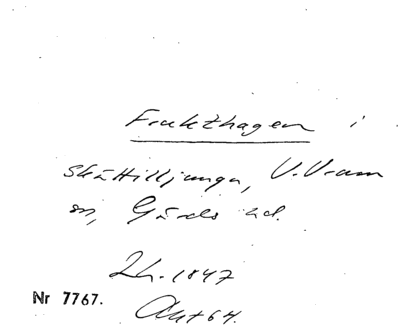 Frukthagen i
Skättilljunga, V. Vram
sn, Gärds hd.
Lh. 1847
Nr 7767.
Akt 64.